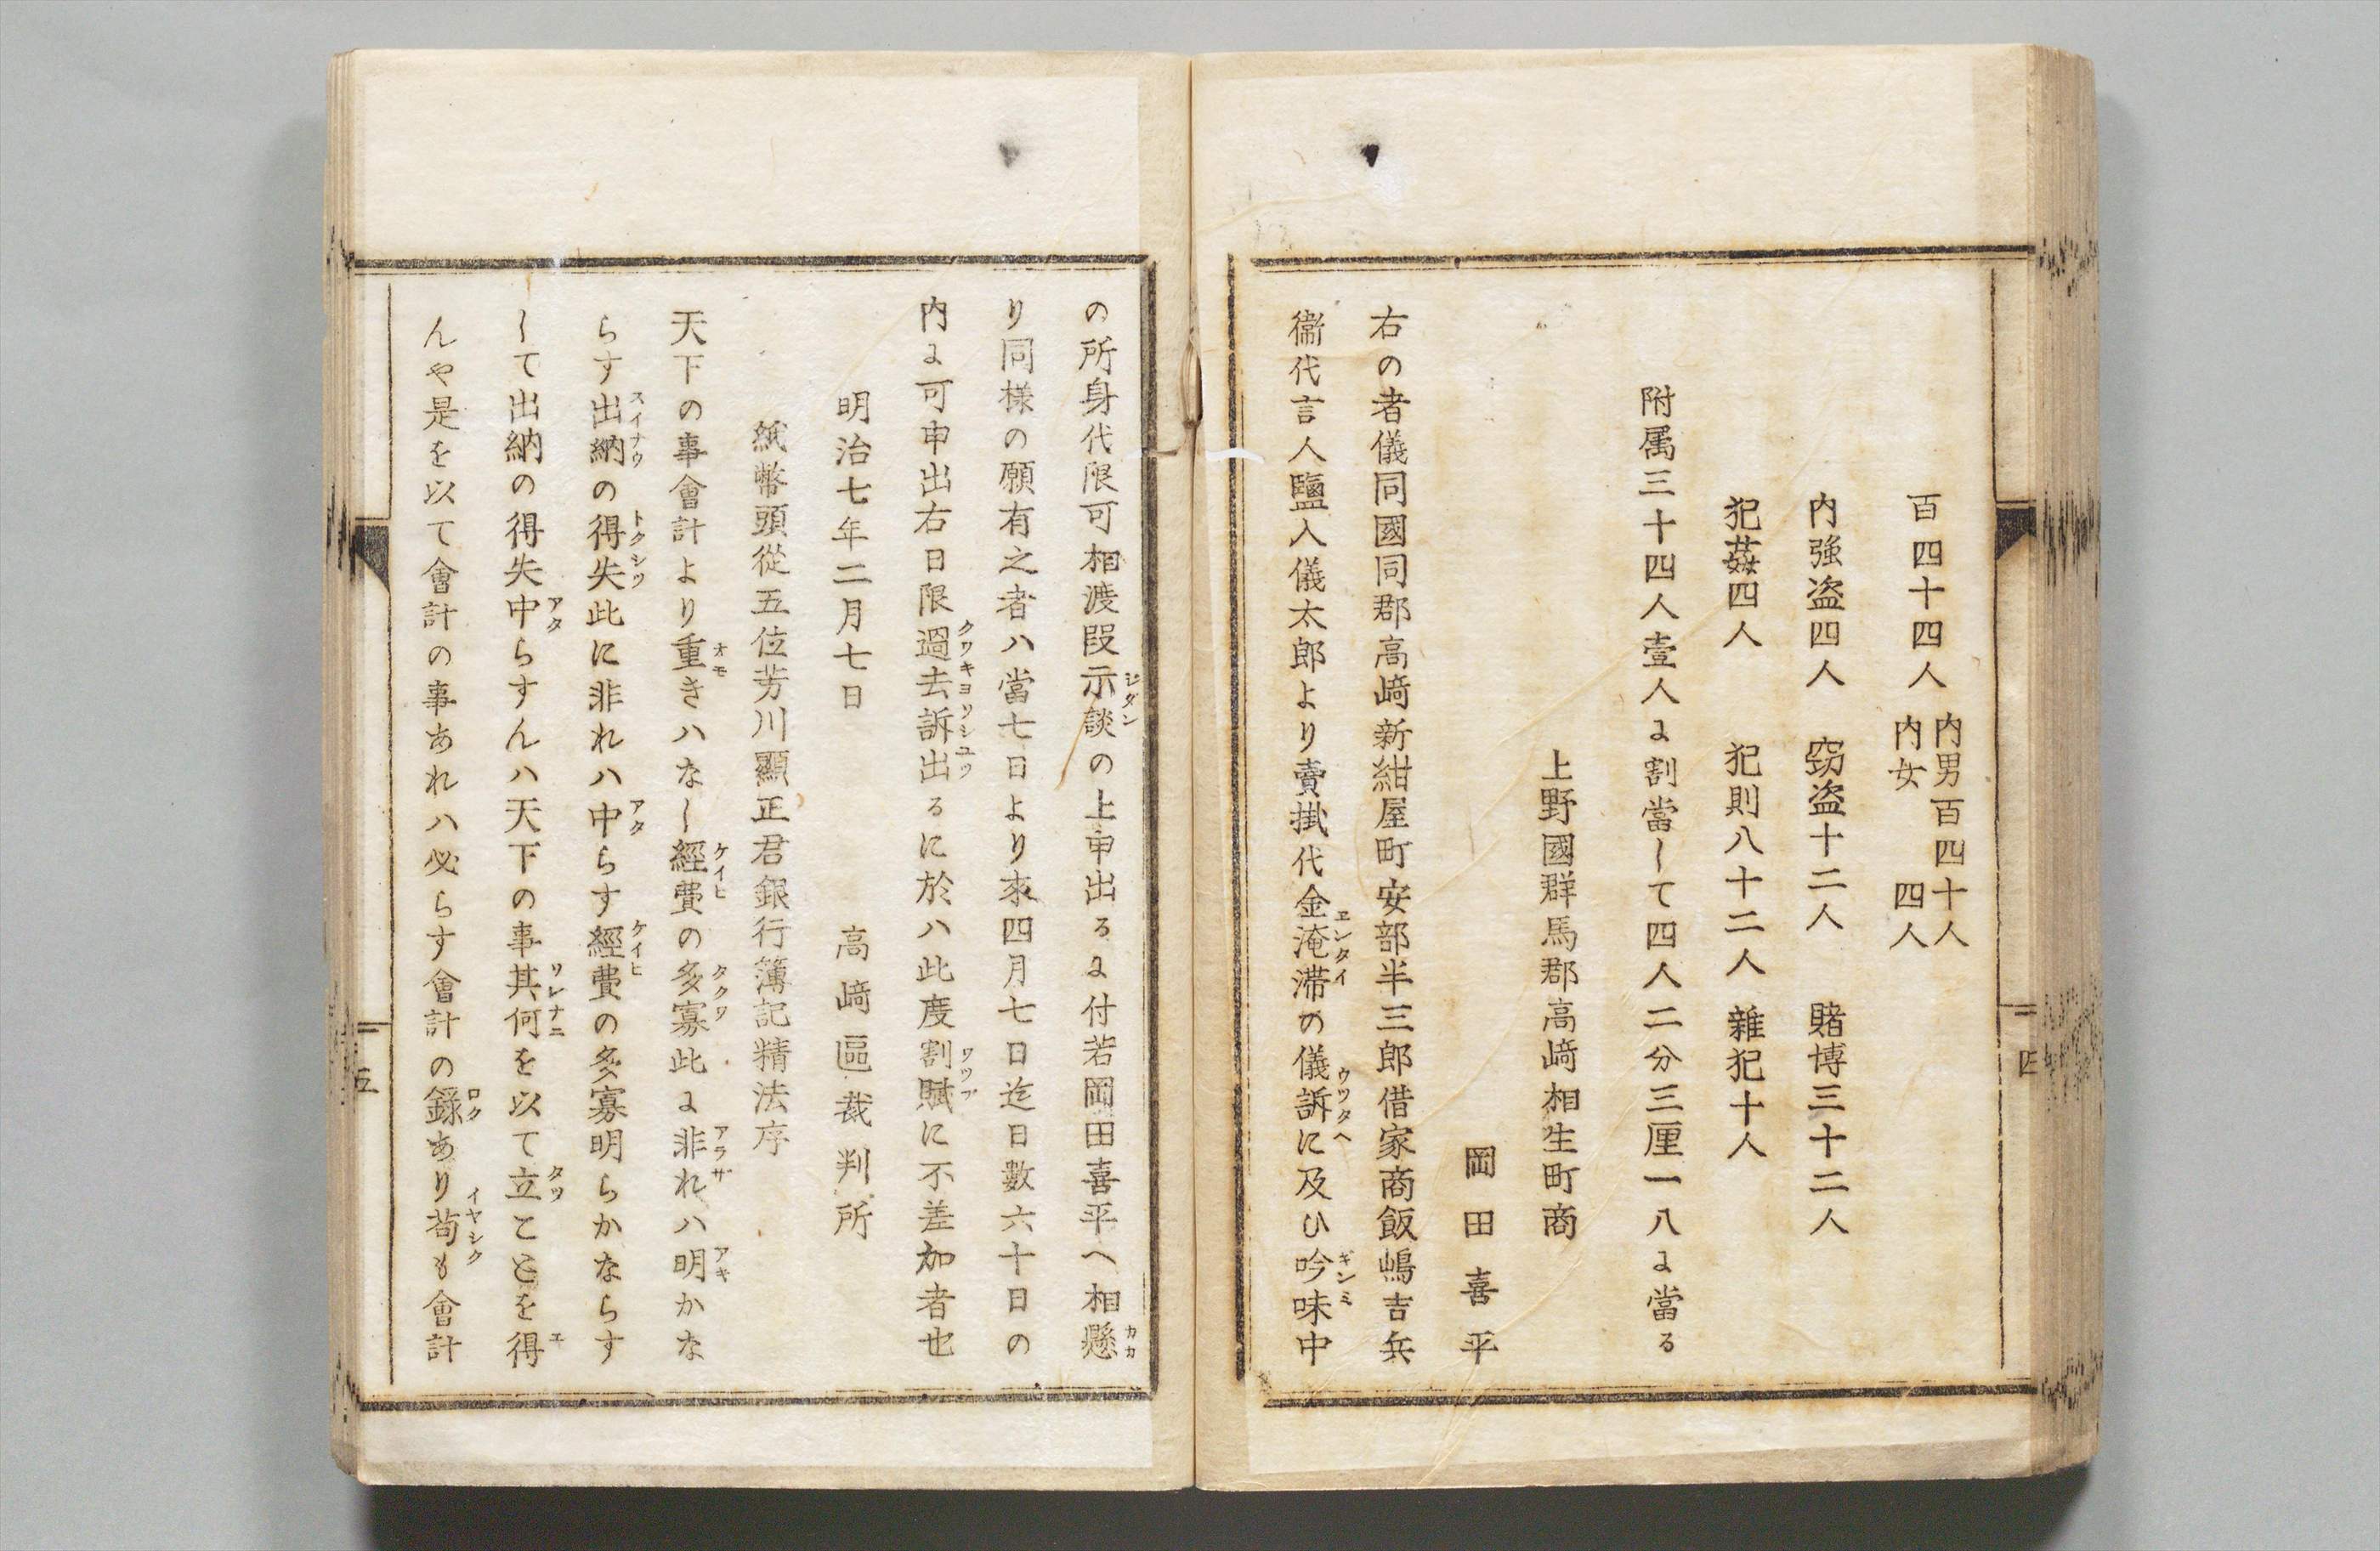 百四十四人 内男百四十人
内女 四人
内強盗四人 窃盗十二人 賭博三十二人
犯姦四人 犯則八十二人 雜犯十人
附属三十四人壹人ゟ割當して四人二分三厘一八ゟ當る
上野國群馬郡高﨑相生町商
岡田喜平
右の者儀同國同郡高﨑新紺屋町安部半三郎借家商飯嶋吉兵
衞代言人鹽入儀太郎より賣掛代金淹滞の儀訴に及ひ吟味中
ヱンタイ ウツタヘ ギンミ
四
の所身代限可相渡段示談の上申出るに付若岡田喜平へ相懸
シダン カカ
り同様の願有之者ハ當七日より來四月七日迄日數六十日の
内に可申出右日限過去訴出るに於ハ此度割賦に不差加者也
クワキヨ ソシユツ ワツプ
明治七年二月七日 高﨑區裁判所
紙幣頭從五位芳川顯正君銀行簿記精法序
天下の事會計より重きハなし經費の多寡此に非れハ明かな
オモ ケイヒ タクワ アラザ アキ
らす出納の得失此に非れハ中らす經費の多寡明らかならす
スイナウ トクシツ アタ ケイヒ
して出納の得失中らすんハ天下の事其何を以て立ことを得
アタ ソレナニ タツ エ
んや是を以て會計の事あれハ必らす會計の録あり苟も會計
ロク イヤシク
五